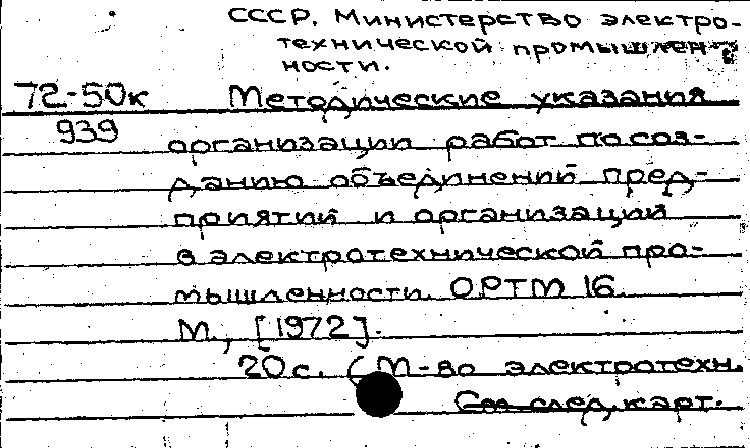 СССР. Министерство электро-
технической промышлен-
ности.
72-50к Методические указания
939 организации работ по соз-
данию объединений пред-
приятий и организаций
в электротехнической про-
мышленности. ОРТМ 16.
М., [1972].
20 с. (М-во электротехн.
См. след. карт.